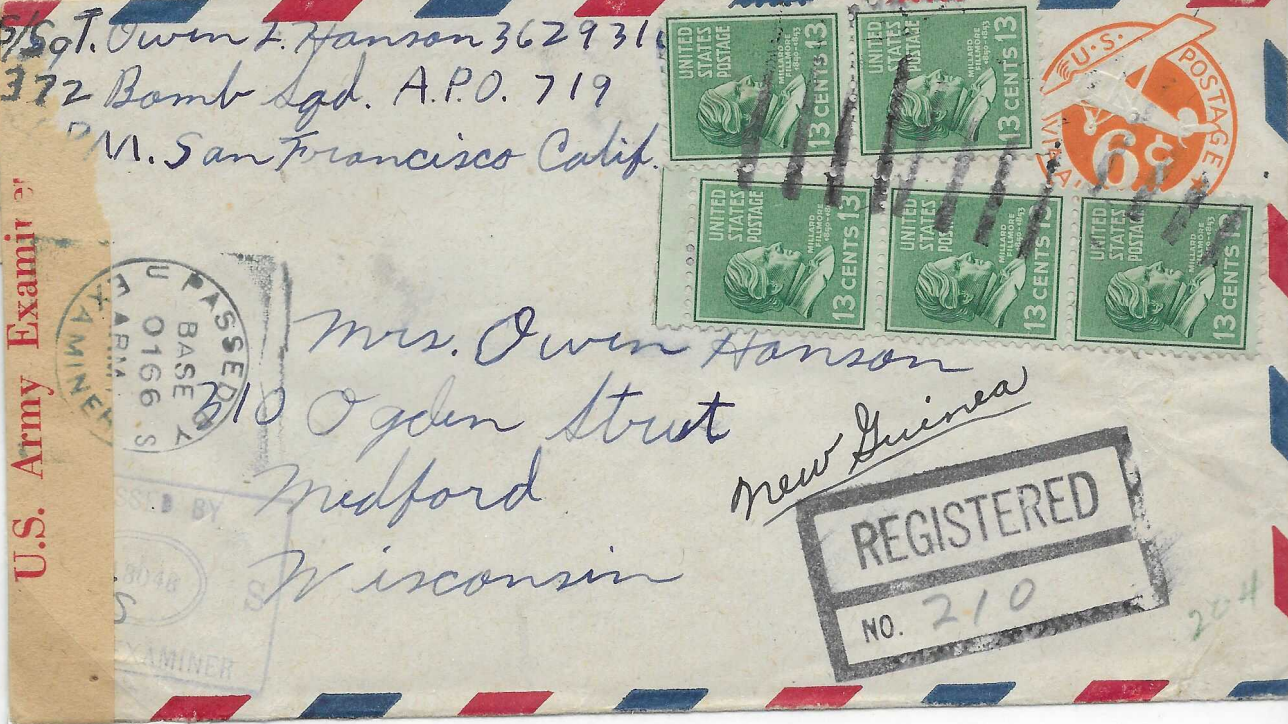 S/Sgt. Owen L. Hanson 362931
372 Bomb Sqd. A.P.O. 719
P.M. San Francisco Calif.
UNITED STATES POSTAGE
MILLARD FILLMORE 1850-1853
13 CENTS 13
UNITED STATES POSTAGE
MILLARD FILLMORE 1850-1853
13 CENTS 13
U.S. POSTAGE
6¢
VIA AI
UNITED STATES POSTAGE
MILLARD FILLMORE 1850-1853
13 CENTS 13
UNITED STATES POSTAGE
MILLARD FILLMORE 1850-1853
13 CENTS 13
UNITED STATES POSTAGE
MILLARD FILLMORE 1850-1853
13 CENTS 13
U.S. Army Examiner
PASSED BY
BASE
0166
ARM
EXAMINER
U S
Mrs. Owen Hanson
310 Ogden Street
Medford
Wisconsin
New Guinea
REGISTERED
NO. 210
204
SSED BY
8048
S
S
EXAMINER